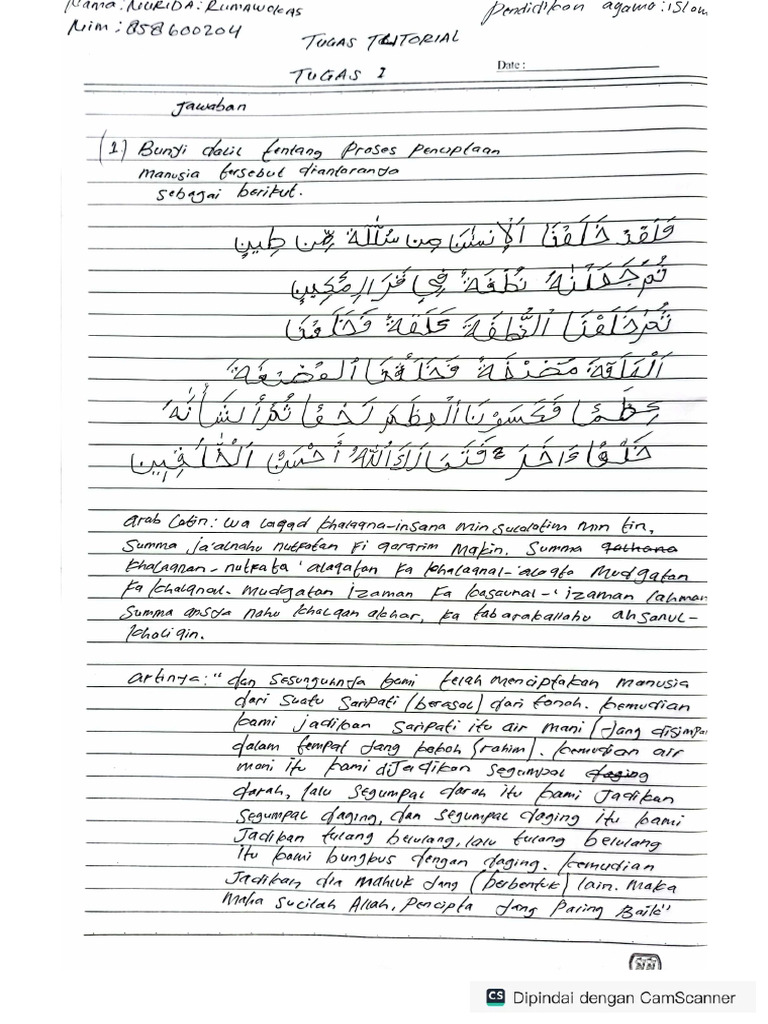 Nama: NURIDA: RUMAWOKAS
Pendidikan agama: ISlam
Nim: 858600204
TUGAS TUTORIAL
TUGAS 1
Date :
Jawaban
(1.) Bunyi dalil tentang Proses Penciptaan
manusia tersebut diantaranya
sebagai berikut.
وَلَقَدْ خَلَقْنَا الْإِنسَٰنَ مِن سُلَٰلَةٍ مِّن طِينٍ
ثُمَّ جَعَلْنَٰهُ نُطْفَةً فِي قَرَارٍ مَّكِينٍ
ثُمَّ خَلَقْنَا النُّطْفَةَ عَلَقَةً فَخَلَقْنَا
الْعَلَقَةَ مُضْغَةً فَخَلَقْنَا الْمُضْغَةَ
عِظَٰمًا فَكَسَوْنَا الْعِظَٰمَ لَحْمًا ثُمَّ أَنشَأْنَٰهُ
خَلْقًا ءَاخَرَ ۚ فَتَبَارَكَ اللَّهُ أَحْسَنُ الْخَٰلِقِينَ
Arab Latin: Wa laqad khalaqna-insana min sulalatim min tin,
Summa ja'alnahu nutfatan fi qararim Makin. Summa
khalaqnan-nutfata 'alaqatan fa khalaqnal-'alaqta Mudgatan
Fa khalqnal-mudgatan izaman fa kasaunal-'izaman lahman
Summa ansya nahu khalqan akhar, fa tabarakallahu ahsanul-
kholiqin.
Artinya: "dan sesungguhnya kami telah menciptakan manusia
dari suatu saripati (berasal) dari tanah. kemudian
kami jadikan saripati itu air mani (yang disimpa
dalam tempat yang kokoh (rahim). kemudian air
mani itu kami diJadikan segumpal daging
darah, lalu segumpal darah itu kami Jadikan
segumpal daging, dan segumpal daging itu kami
Jadikan tulang belulang, lalu tulang belulang
itu kami bungkus dengan daging. kemudian
Jadikan dia mahluk yang (berbentuk) lain. Maka
Maha sucilah Allah, Pencipta yang Paring Baik"
CS Dipindai dengan CamScanner